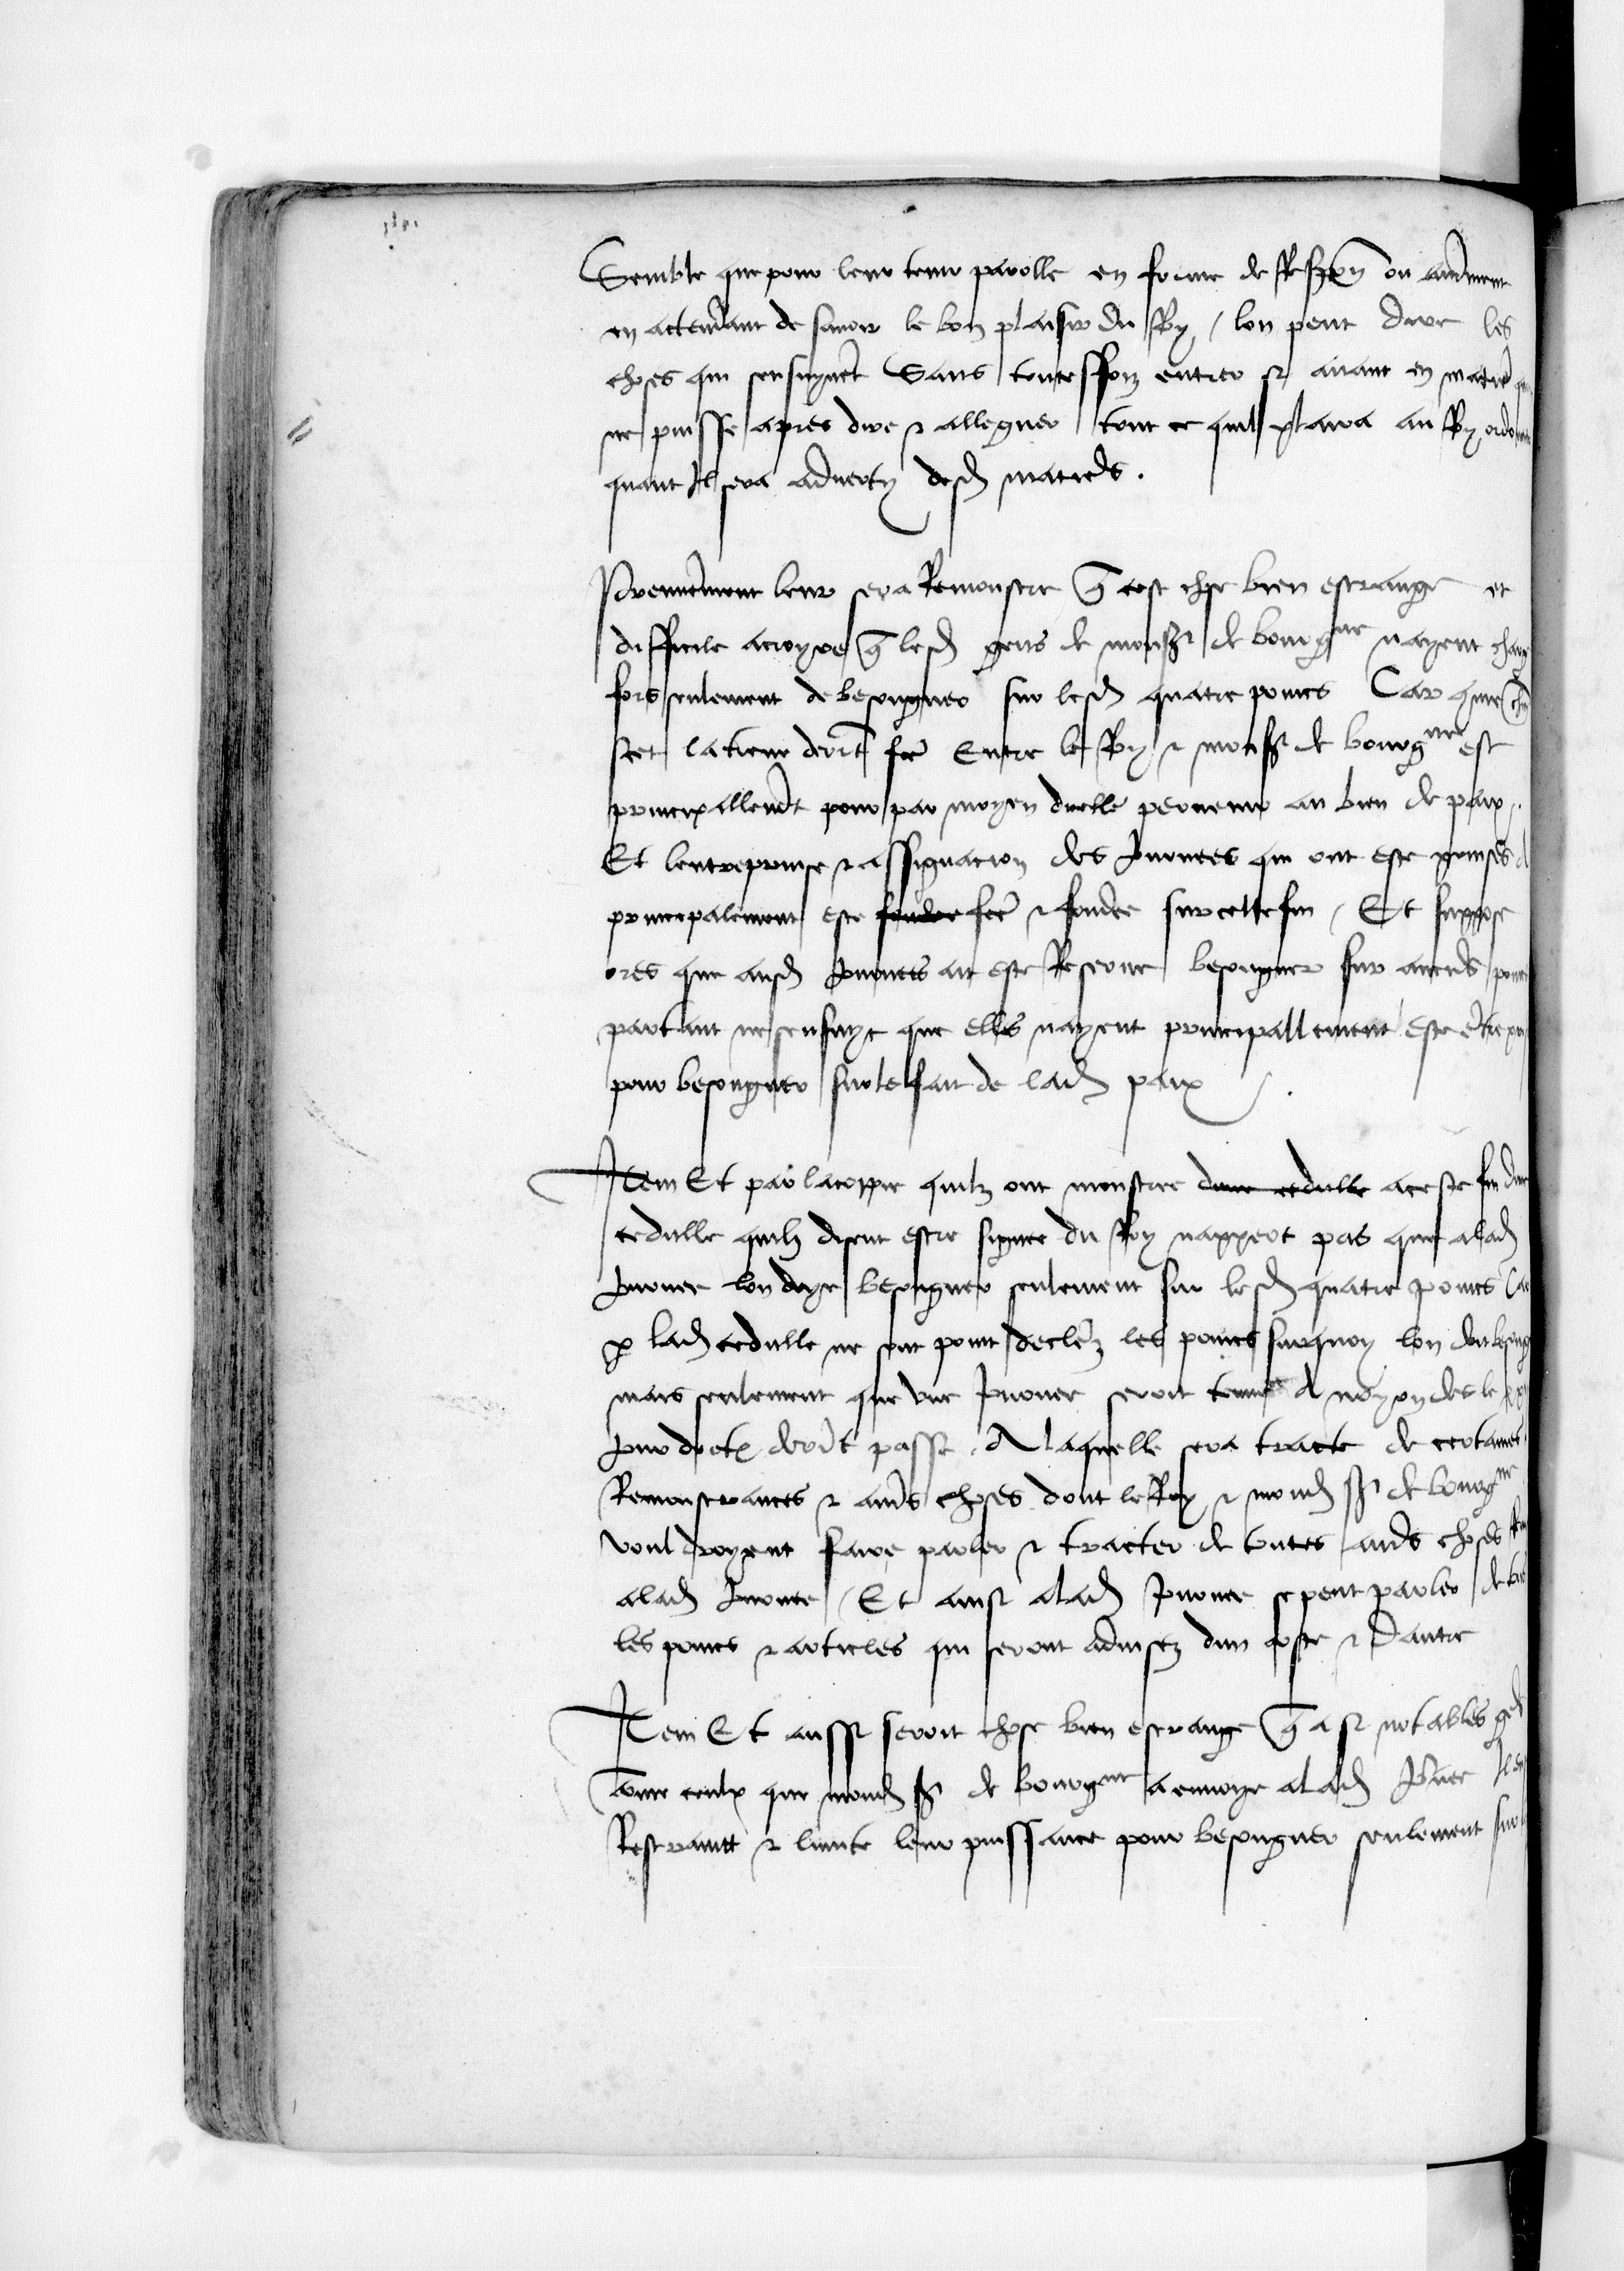 Semble que pour leur tenir parolle en forme de Responce ou autrement
en actendant de savoir le bon plaisir du Roy / lon peut dire les
choses qui sensuyvent Sans toutesffoiz entrer si avant en matiere
ne puisse apres dire et alleguer tout ce quil plaira au Roy
quant Il sera adverty desd matieres.
Premierement leur sera Remonstre que cest chose bien estrange et
difficile acroyre que lesd gens de monsr de bourgne nayent
fors seulement de besongner sur lesd quatre poincts Car
scet la treve dernt fce Entre le Roy et monsr de bourgne est
principallemt pour par moyen dicelle pervenir au bien de paix.
Et lentreprinse et assignacion des Journees qui ont este prinses
principalement este fondee fce et fondee sur celle fin / Et suppose
ores que ausd Journees ait este Reserve besongner sur aucuns
partant ne sensuyt que elles nayent principallement este
pour besongner sur le fait de lad paix
Item Et par la coppie quilz ont monstree dune cedulle aceste fin dune
cedulle quilz disent estre signee du Roy nappert pas que alad
Journee lon doye besongner seulement sur lesd quatre poincts Car
par lad cedulle ne sont point declerez les poincts surquoy lon doit
mais seulement que une Journee seroit tenue A noyon des le
Jour doctobre dernt passe. A laquelle sera traicte de certaines
Remonstrances et autres choses dont le Roy et mond sr de bourgne
vouldroyent faire parler et traicter de toutes autres choses
alad Journee / Et ainsi alad Journee se peut parler de
les poincts et articles qui seront advisez dun coste et Dautre
Item Et aussi seroit chose bien estrange que a si notables
comme ceulx que mond sr de bourgne a envoye alad Journee
Restrainct et limite leur puissance pour besongner seulement sur